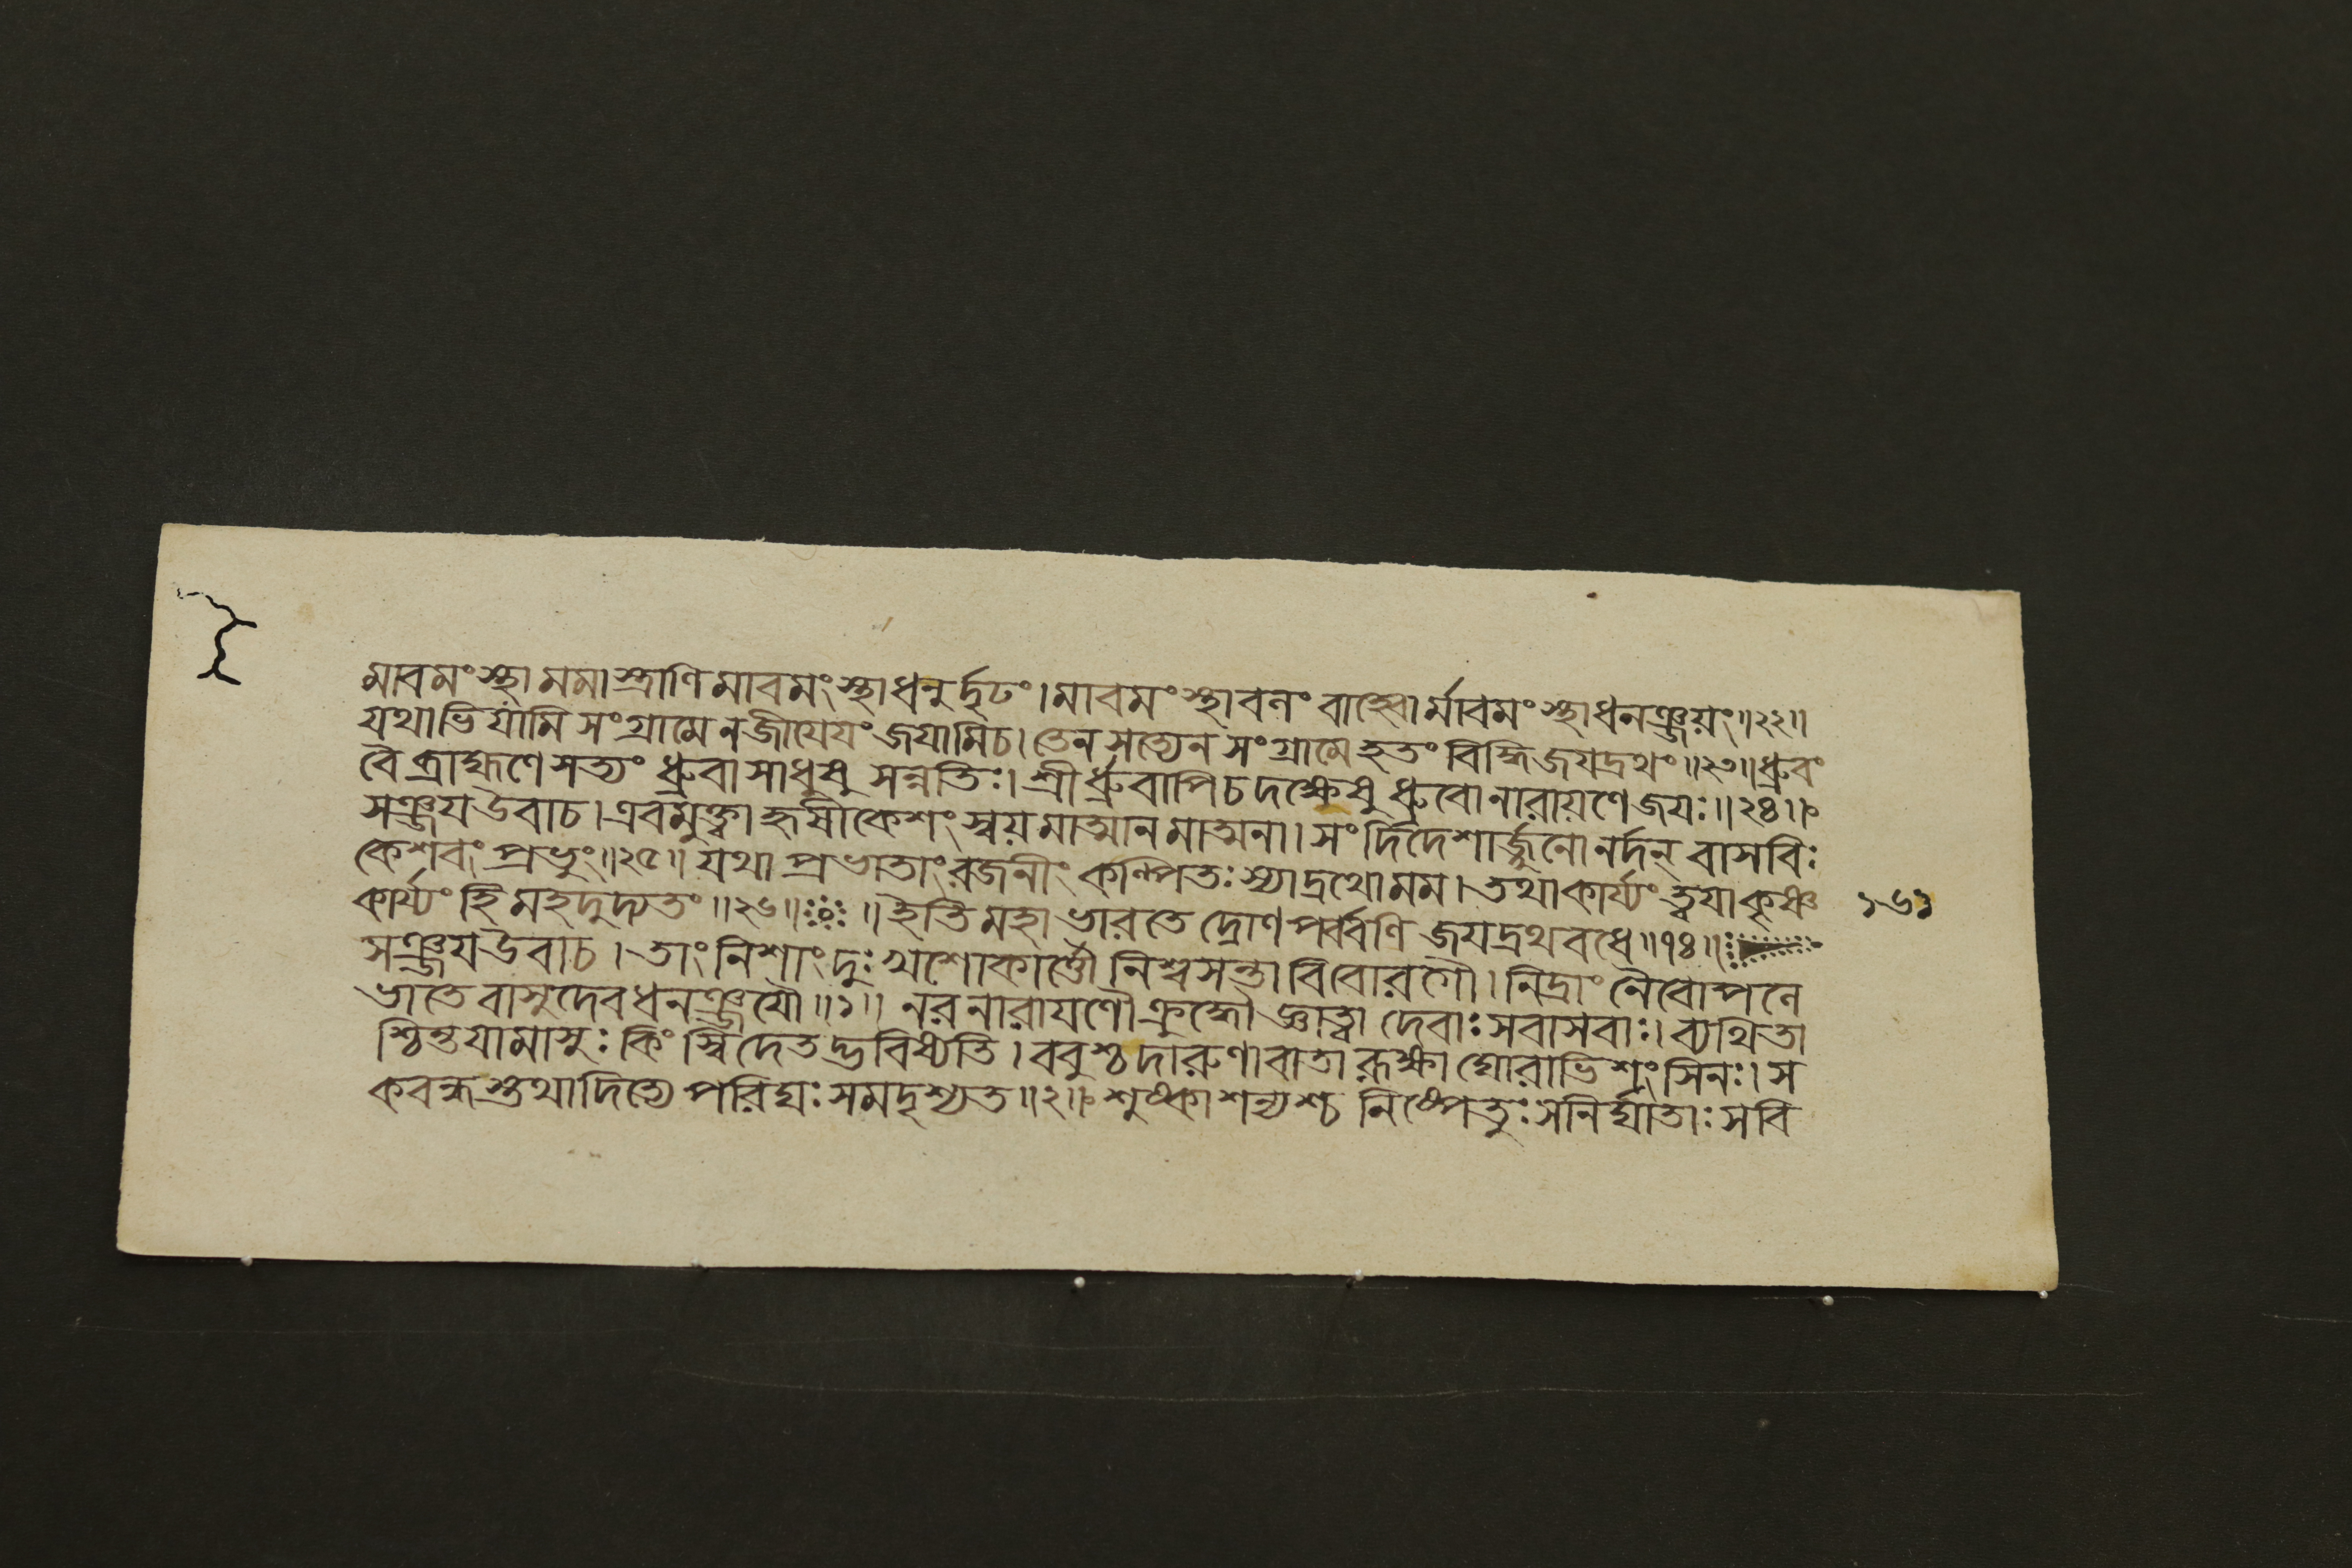 মাবমংস্থা মমাস্ত্রাণি মাবমংস্থাধনুর্দৃঢং। মাবমংস্থাবলং বাহ্বোর্মাবমংস্থাধনঞ্জয়ং॥২২॥
যথাভিযামি সংগ্রামে ন জীযেযং জযামিচ। তেন সত্যেন সংগ্রামে হতং বিদ্ধি জযদ্রথং॥২৩॥ধ্রুবং
বৈ ব্রাহ্মণে সত্যং ধ্রুবা সাধুষু সন্নতিঃ। শ্রীর্ধ্রুবাপিচ দক্ষেষু ধ্রুবো নারায়ণে জযঃ॥২৪॥
সঞ্জযউবাচ। এবমুক্ত্বা হৃষীকেশং স্বয়মাত্মানমাত্মনা। সংদিদেশার্জ্জুনো নর্দন্ বাসবিঃ
কেশবং প্রভুং॥২৫॥ যথা প্রভাতাং রজনীং কল্পিতঃ স্যাদ্রথো মম। তথাকার্য্যং ত্বযাকৃষ্ণ
কার্য্যং হি মহদুদ্যতং॥২৬॥ঃ০ঃ॥ ইতি মহাভারতে দ্রোণপর্ব্বণি জযদ্রথবধে॥৭৪॥
১৬১
সঞ্জযউবাচ। তাং নিশাং দুঃখশোকার্ত্তৌ নিশ্বসন্তাবিবোরগৌ। নিদ্রাং নৈবোপলে
ভাতে বাসুদেবধনঞ্জযৌ॥১॥ নরনারাযণৌ ক্রুদ্ধৌ জ্ঞাত্বা দেবাঃ সবাসবাঃ। ব্যথিতা
শ্চিন্তযামাসুঃ কিংস্বিদেতদ্ভবিষ্যতি। ববুশ্চ দারুণা বাতা রূক্ষা ঘোরাভিশংসিনঃ। স
কবন্ধস্তথাদিত্যে পরিঘঃ সমদৃশ্যত॥২॥ শুষ্কাশন্যশ্চ নিষ্পেতুঃ সনির্ঘাতাঃ সবি